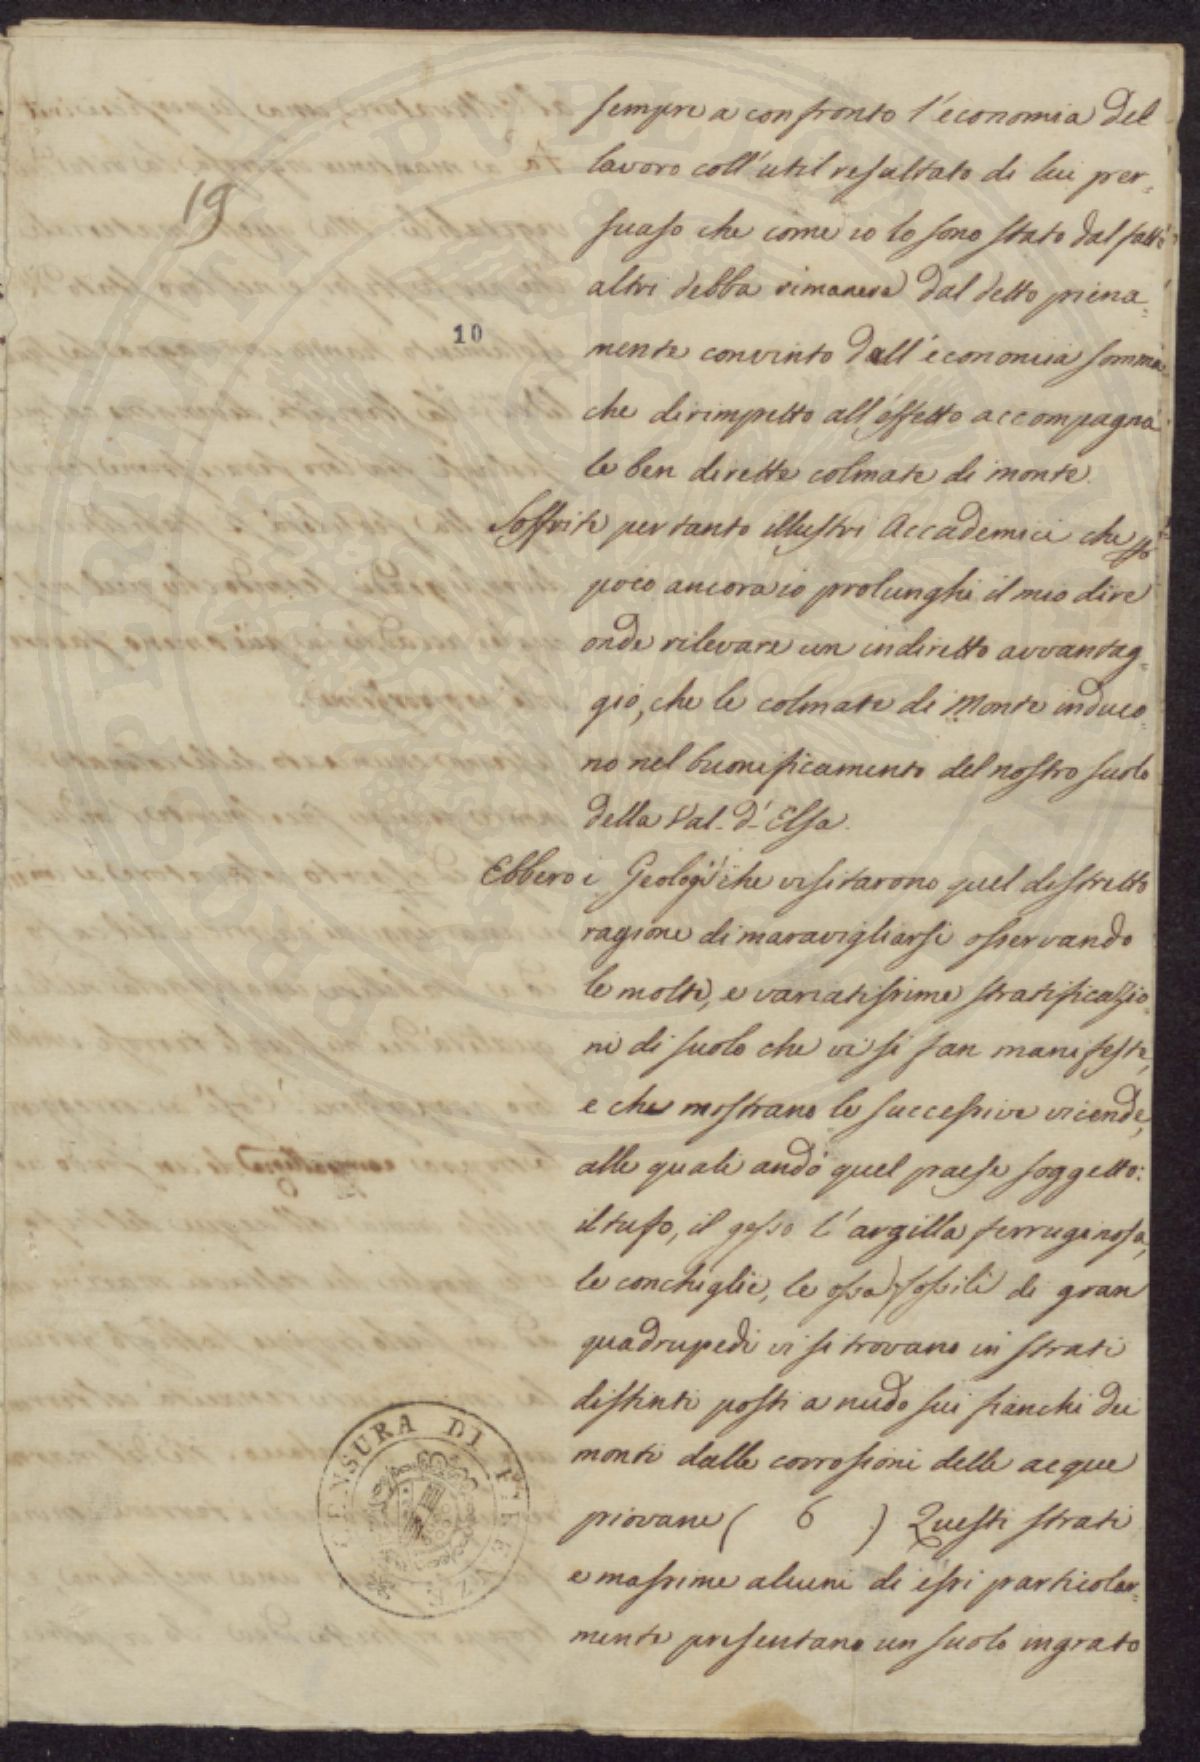 19
10
sempre a confronto l'economia del
lavoro coll'util resultato di lui per=
suaso che come io lo sono stato dal fatto
altri debba rimanere dal detto piena=
mente convinto dall'economia somma
che dirimpetto all'effetto accompagna
le ben dirette colmate di monte.
Soffrite pertanto illustri Accademici che
poco ancora io prolunghi il mio dire
onde rilevare un indiretto avvantag=
gio, che le colmate di Monte induco=
no nel buonificamento del nostro suolo
della Val-d'-Elsa.
Ebbero i Geologi che visitarono quel distretto
ragione di maravigliarsi osservando
le molte, e variatissime stratificazio=
ni di suolo che vi si fan manifeste,
e che mostrano le successive vicende,
alle quali andò quel paese soggetto:
il tufo, il gesso l'argilla ferruginosa,
le conchiglie, le ossa fossili di gran
quadrupedi vi si trovano in strati
distinti posti a nudo sui fianchi dei
monti dalle corrosioni delle acque
piovane ( 6 ) Questi strati
e massime alcuni di essi particolar=
mente presentano un suolo ingrato
CENSURA DI FIRENZE